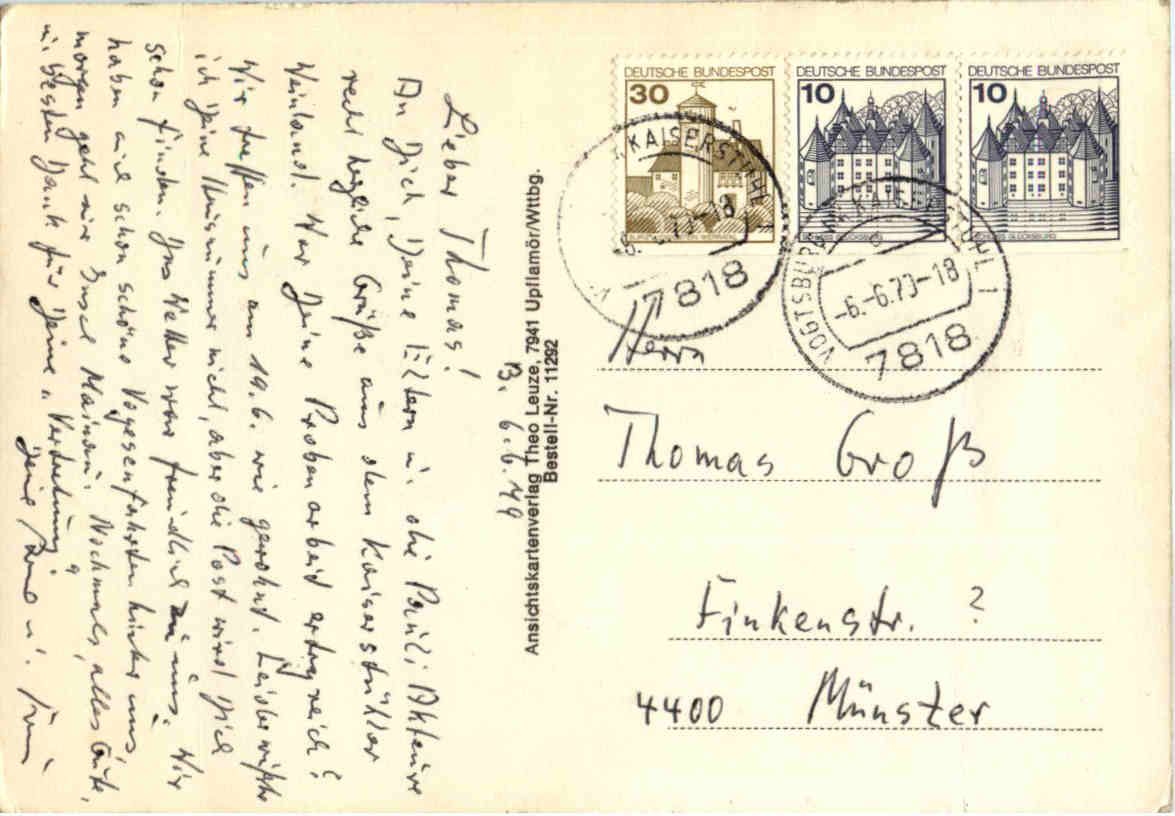 B. 6.6.79
Lieber Thomas!
An Dich, Deine Eltern u. die
recht herzliche Grüße aus dem Kaiserstühler
Weinland. War Deine Probenarbeit ertragreich?
Wir treffen uns am 19.6. wie gewohnt. Leider wußte
ich Deine Hausnummer nicht, aber die Post wird Dich
schon finden. Das Wetter war freundlich zu uns. Wir
haben schon schöne Vogesenfahrten hinter uns,
morgen geht's Insel Mainau. Nochmals alles Gute,
u. besten Dank für Deine
Deine
Ansichtskartenverlag Theo Leuze, 7941 Upflamör/Wttbg.
Bestell-Nr. 11292
DEUTSCHE BUNDESPOST
30
DEUTSCHE BUNDESPOST
10
DEUTSCHE BUNDESPOST
10
SCHLOSS GLÜCKSBURG
KAISERSTUHL
7818
VOGTSBURG IM KAISERSTUHL 1
-6.-6.79-18
7818
Herrn
Thomas Groß
Finkenstr. ?
4400 Münster